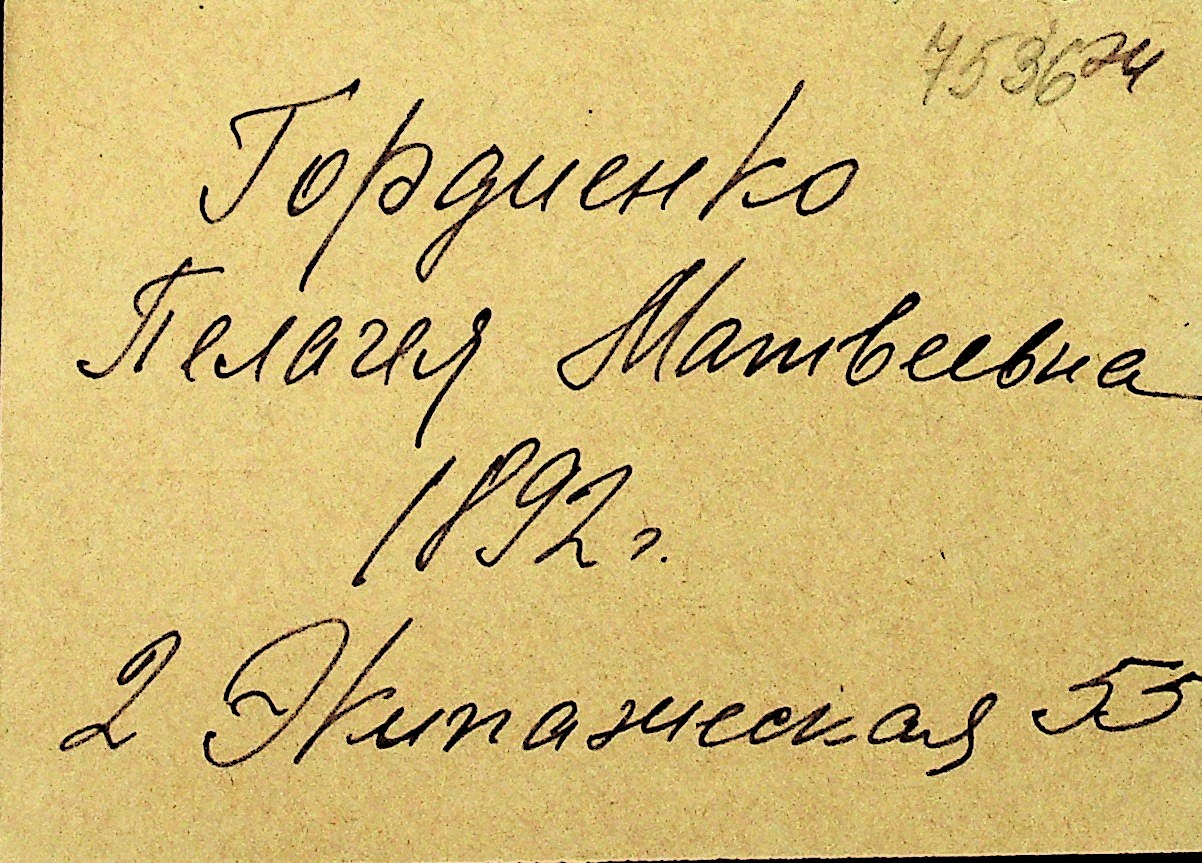 75367ч
Гордиенко
Пелагея Матвеевна
1892 г.
2 Экипажеская 55